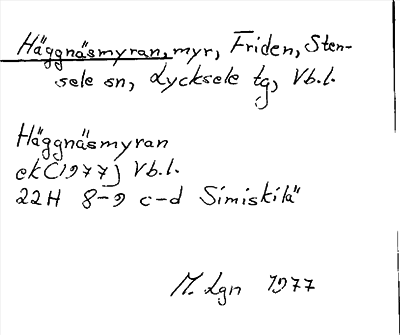 Häggnäsmyran, myr, Friden, Sten-
sele sn, Lycksele tg, Vb.l.
Häggnäsmyran
ek (1977) Vb.l.
22H 8-9 c-d Simiskilä
M. Lgn 1977